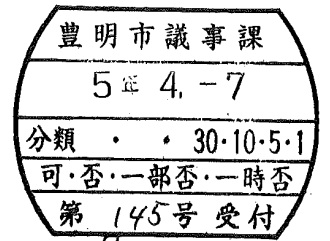 豊明市議事課
5年 4. -7
分類 ・ ・ 30・10・5・1
可・否・一部否・一時否
第 145号 受付